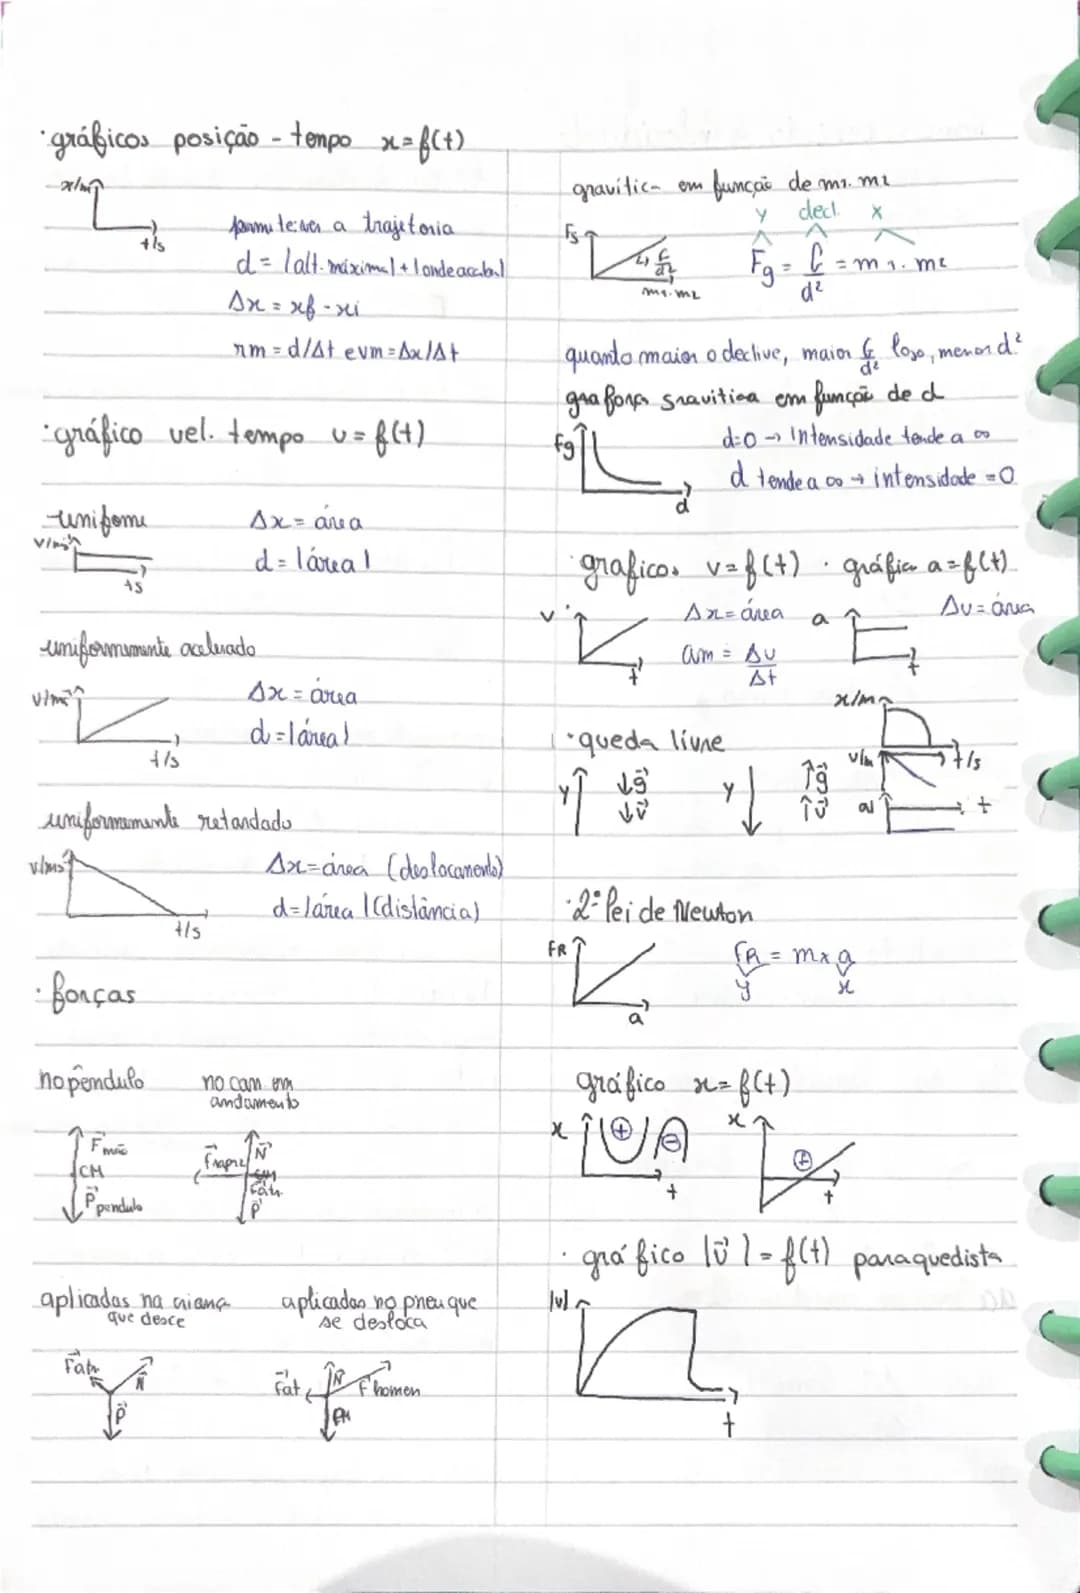 · gráficos posição - tempo x = f(t)
x/m
t/s
permite ver a trajetoria
d = |alt. máxima| + |onde acaba|
Δx = xf - xi
rm = d/Δt e vm = Δx/Δt
· gráfico vel. tempo v = f(t)
uniforme
Δx = área
d = |área|
uniformemente acelerado
Δx = área
d = |área|
t/s
uniformemente retardado
Δx = área (deslocamento)
d = |área| (distância)
t/s
· forças
no pêndulo
no carr em
andamento
F mão
CM
P pendulo
N
Fatr
P
aplicadas na criança
que desce
Fatr
N
P
aplicadas no pneu que
se desloca
Fat
N
F homen
gravític- em função de m1. m2
y decl x
Fg
G/d2
m1. m2
Fg = G/d² = m1. m2
quanto maior o declive, maior G/d² logo, menor d²
gra força gravitica em função de d
Fg
d
d=0 → Intensidade tende a ∞
d tende a ∞ → intensidade = 0
· graficos v = f(t) · gráfico a = f(t)
v
t
Δx = área
am = Δv/Δt
a
t
Δv = área
· queda livre
y
g
v
y
g
v
x/m
t/s
v/m
t
· 2ª lei de Newton
FR
a
FR = m x a
y x
gráfico x = f(t)
x
+
-
t
x
+
t
· gráfico |v| = f(t) paraquedista
|v|
t